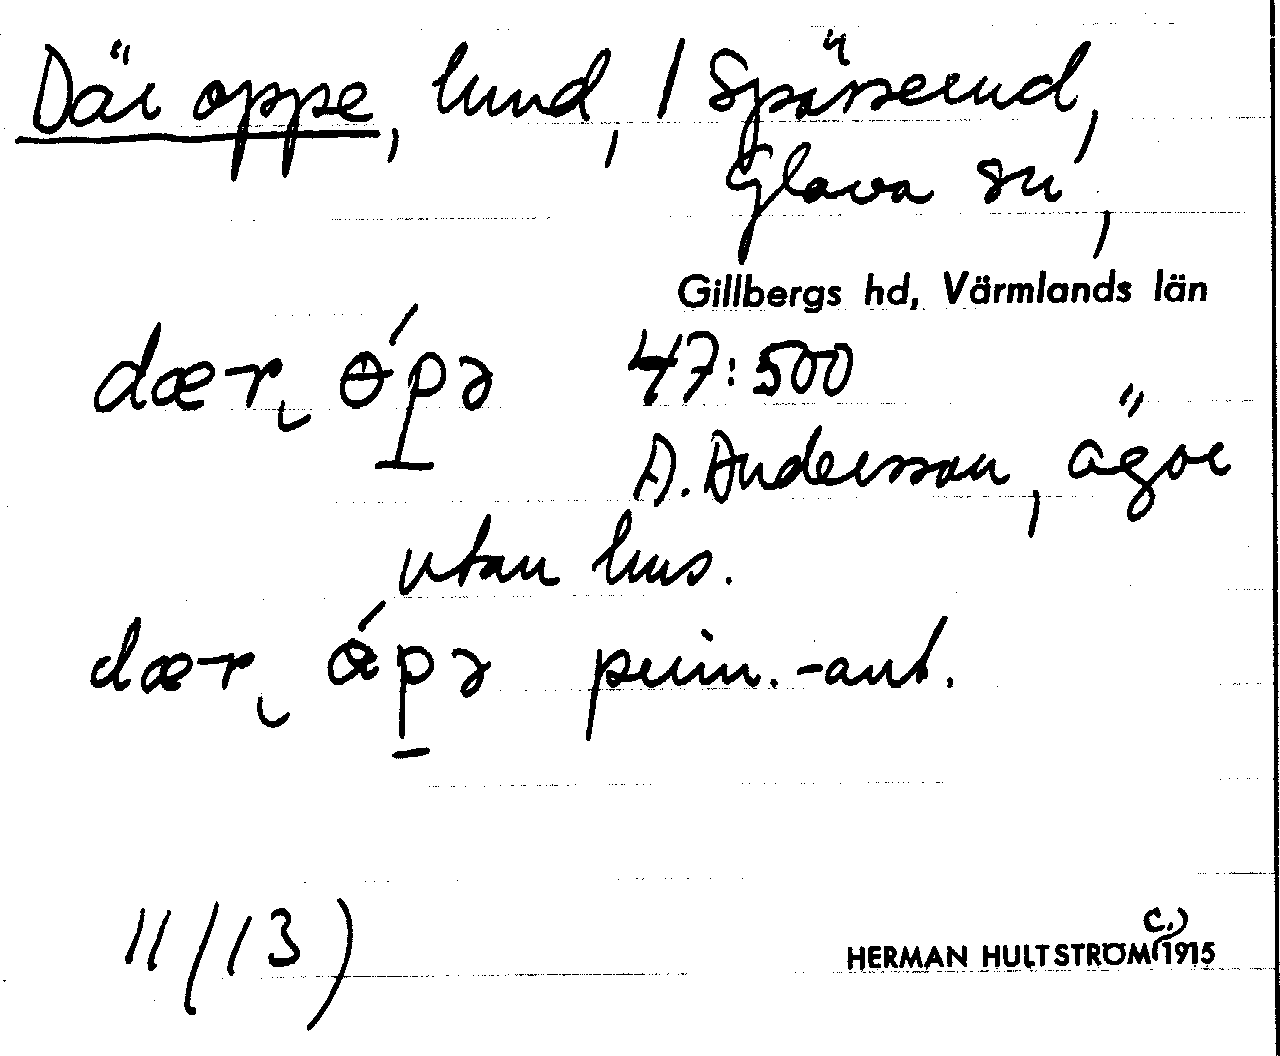 Där oppe, lund, / Spässerud,
Glava sn,
Gillbergs hd, Värmlands län
dær, ɵ́pə 47:500
A. Andersson, ägor
utan hus.
dær, ápə prim.-ant.
11/13)
HERMAN HULTSTRÖM c. 1915